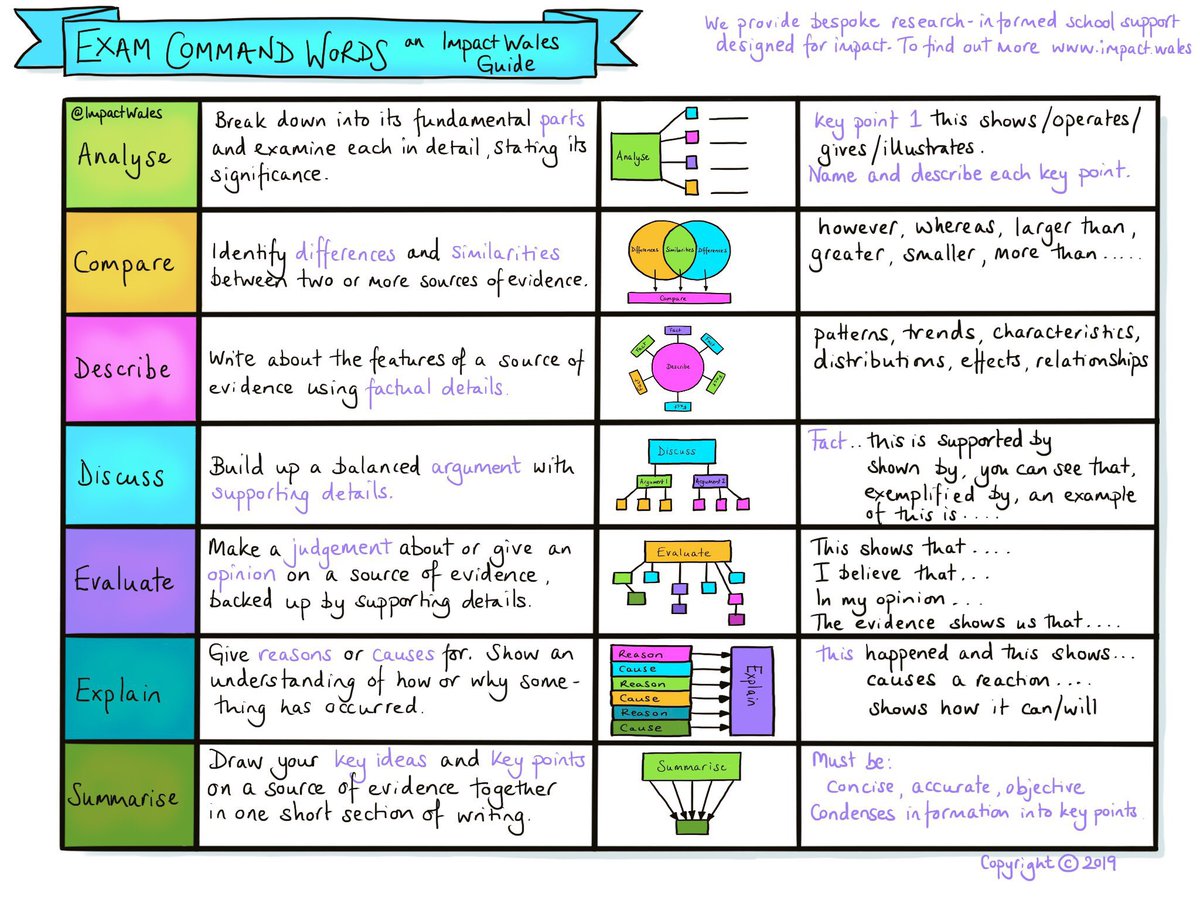 EXAM COMMAND WORDS an Impact Wales
Guide
We provide bespoke research-informed school support
designed for impact. To find out more www.impact.wales
@ImpactWales
Analyse
Break down into its fundamental parts
and examine each in detail, stating its
significance.
Analyse
Key point 1 this shows/operates/
gives/illustrates.
Name and describe each key point.
Compare
Identify differences and similarities
between two or more sources of evidence.
Differences
Similarities
Differences
Compare
however, whereas, larger than,
greater, smaller, more than.....
Describe
Write about the features of a source of
evidence using factual details.
Fact
Fact
Fact
Describe
Fact
Fact
Fact
patterns, trends, characteristics,
distributions, effects, relationships
Discuss
Build up a balanced argument with
supporting details.
Discuss
Argument 1
Argument 2
Fact.. this is supported by
shown by, you can see that,
exemplified by, an example
of this is....
Evaluate
Make a judgement about or give an
opinion on a source of evidence,
backed up by supporting details.
Evaluate
This shows that....
I believe that...
In my opinion...
The evidence shows us that....
Explain
Give reasons or causes for. Show an
understanding of how or why some-
thing has occurred.
Reason
Cause
Reason
Cause
Reason
Cause
Explain
this happened and this shows...
causes a reaction....
shows how it can/will
Summarise
Draw your key ideas and key points
on a source of evidence together
in one short section of writing.
Summarise
Must be:
Concise, accurate, objective
Condenses information into key points
Copyright © 2019